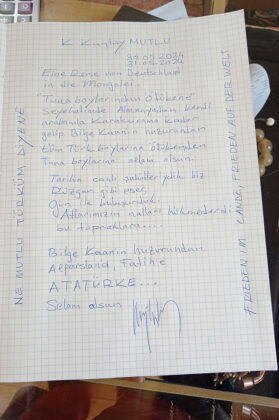 K Kugtay MUTLU
30.05.2024
31.05.2024
Eine Reise von Deutschland
in die Mongolei.
"Tuna boylarından Ötükene"
Seyehatimde Almanyadan kendi
arabamla Karakuruma kadar
gelip Bilge Kaanin huzurundan
tüm Türk boylarına ötükenden
Tuna boylarına selam olsun.
Tarihin canlı şahitleriydik biz
Rüzgar gibi eser,
Gün ile buluşurduk.
Atlarımızın nalları hükmederdi
bu topraklara....
Bilge Kaanin huzurundan
Alparslana, Fatihe
ATATÜRKE...
Selam olsun
NE MUTLU TÜRKÜM DİYENE
FRIEDEN IM LANDE, FRIEDEN AUF DER WELT